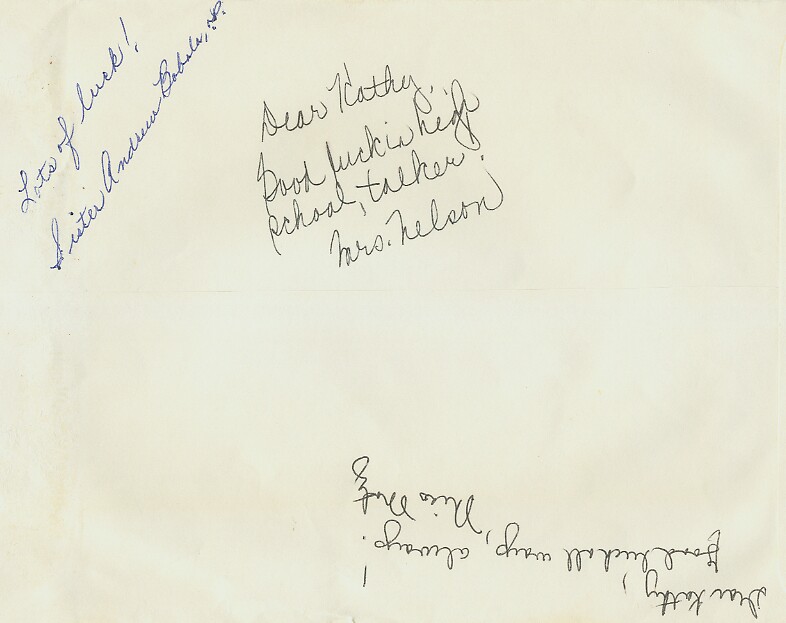 Lots of luck!
Sister Andrew Bobola,
Dear Kathy,
Good luck in high
school, talker!
Mrs. Nelson
Dear Kathy,
Good luck all ways, always!
Miss